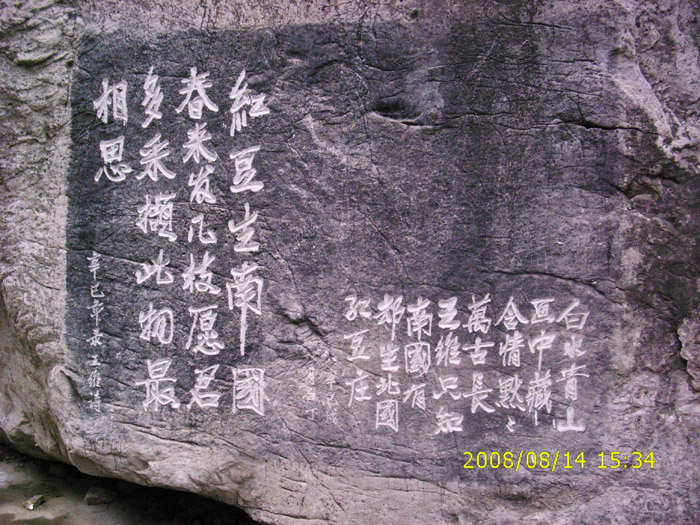 白水青山
亙中藏
含情默々
萬古長
王維只知
南國有
却生北國
紅豆庄
紅豆生南國
春来发几枝愿君
多采擷此物最
相思
辛巳年录王維詩
2008/08/14 15:34